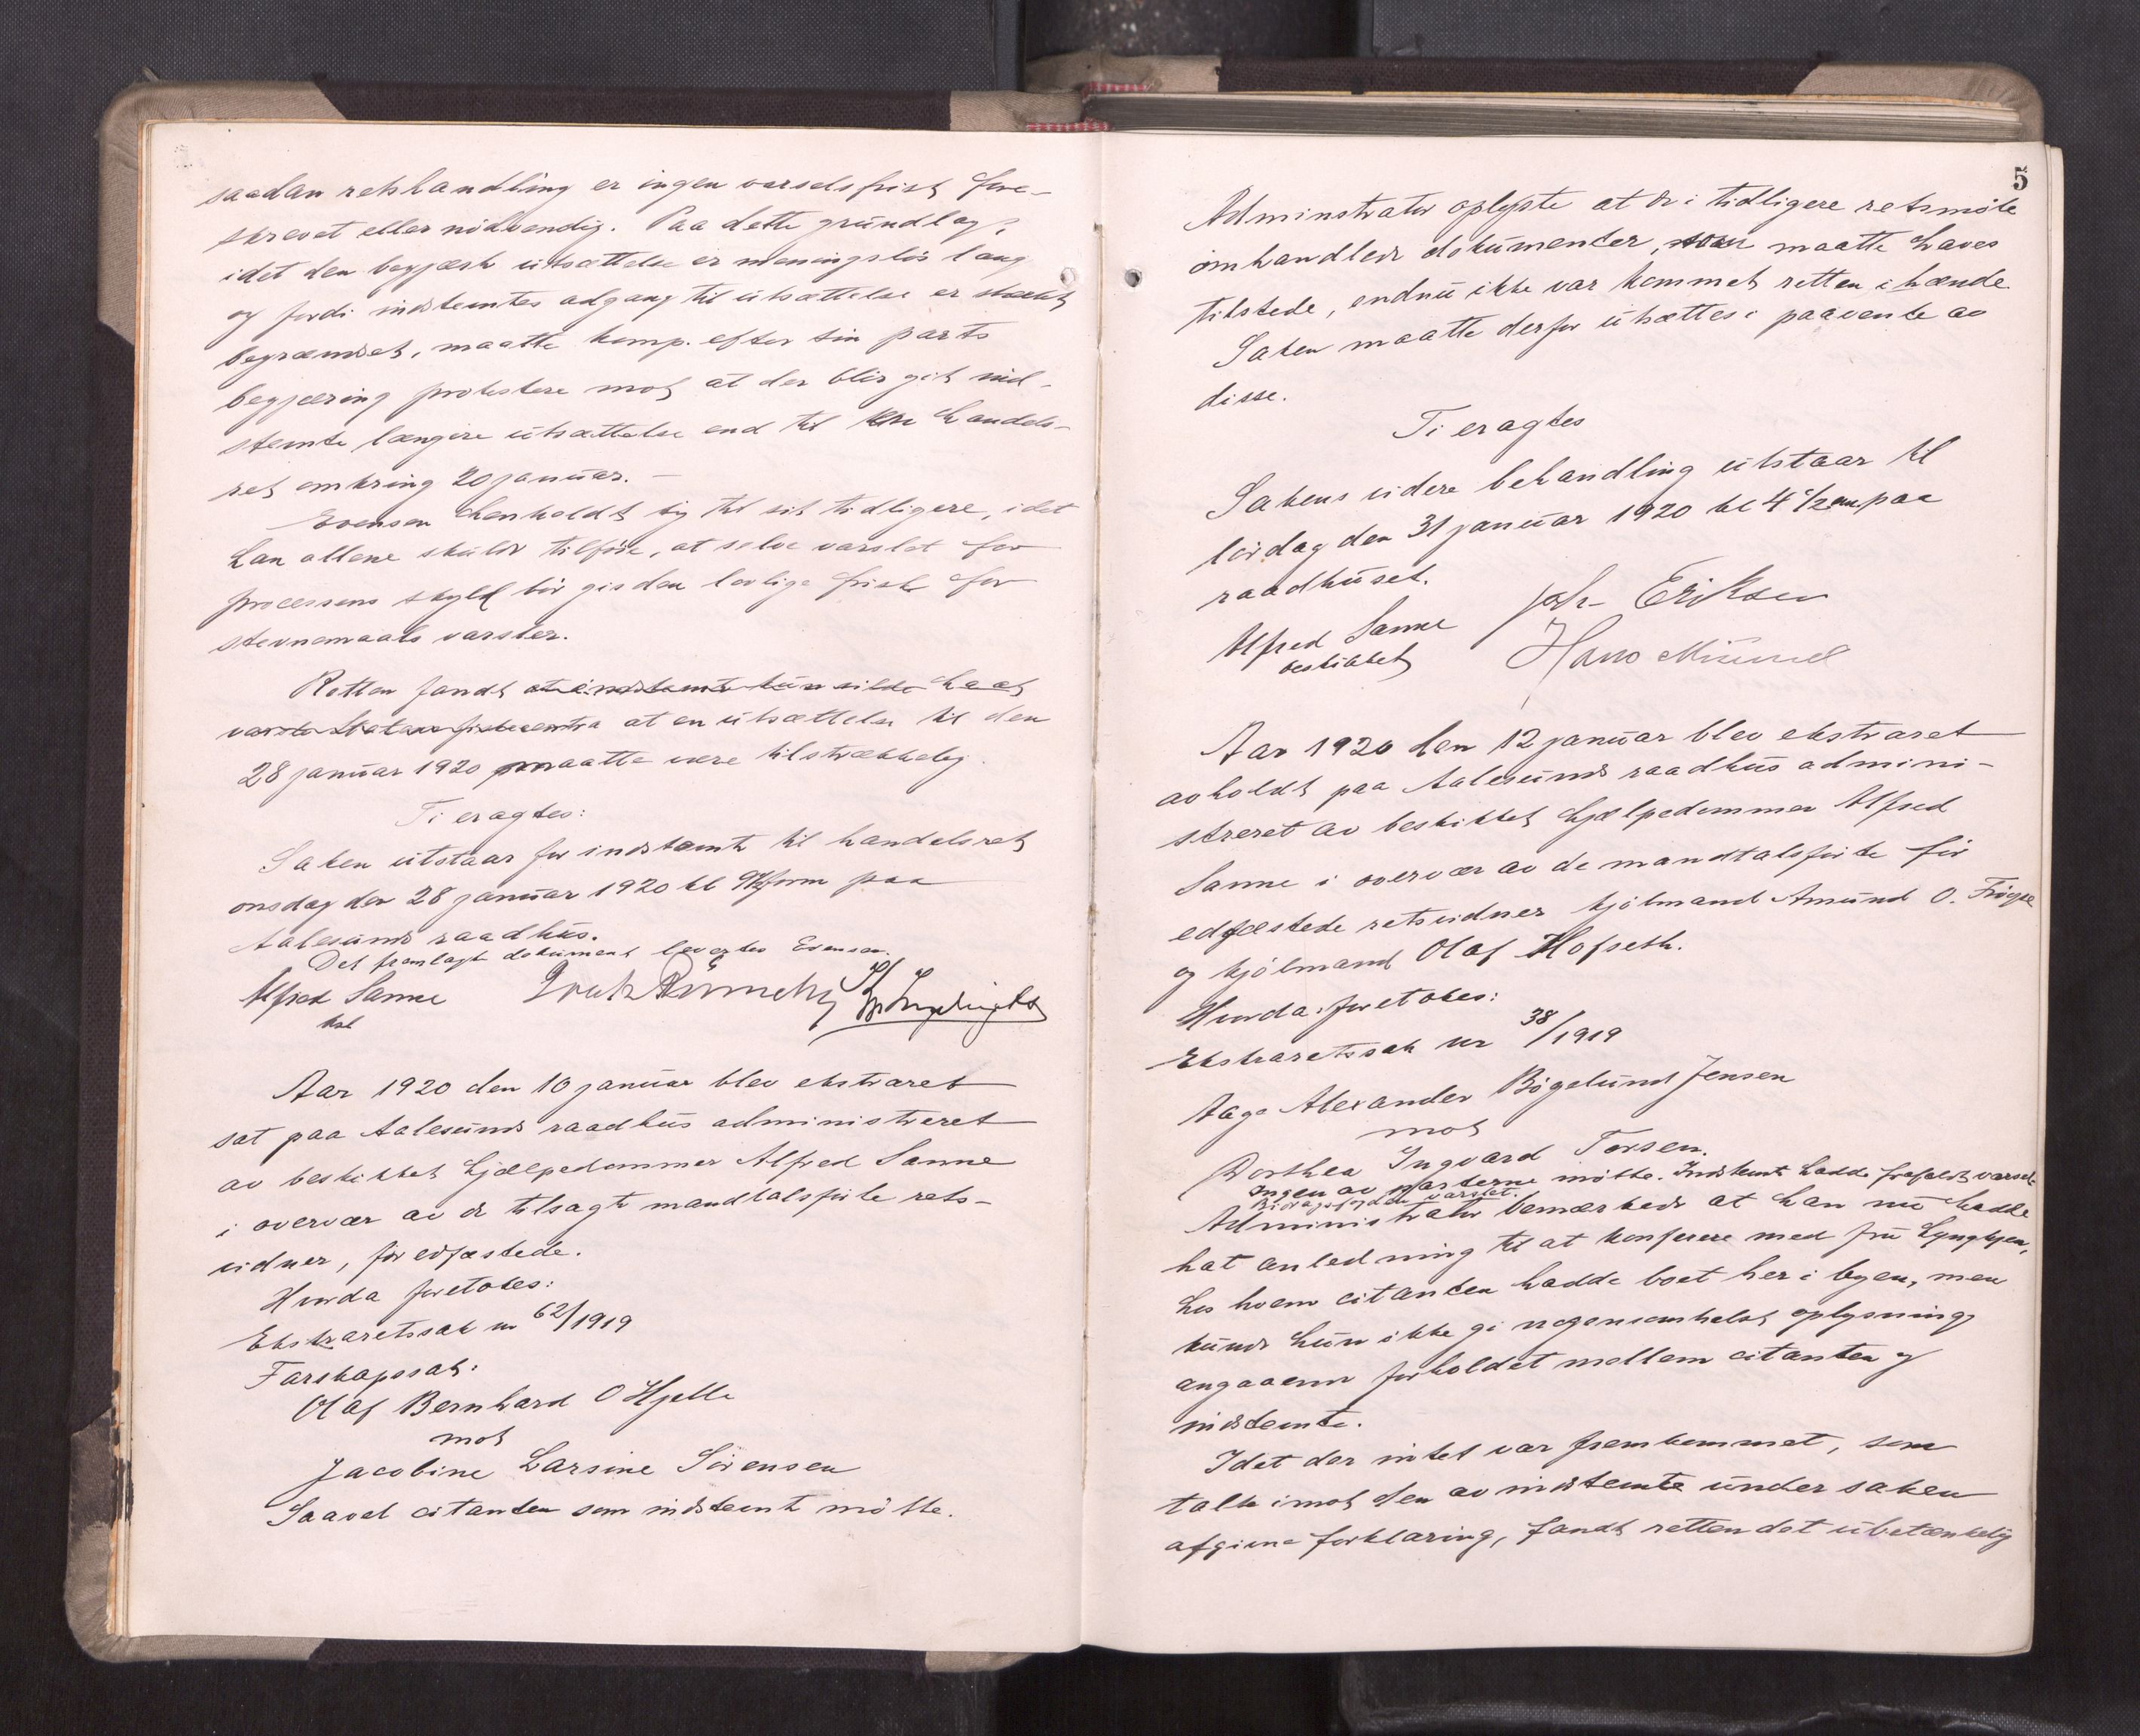 saadan retshandling er ingen varselsfrist fore-
skrevet eller nödvendig. Paa dette grundlag,
idet den begjærte utsættelse er meningslös lang
og fordi indstemtes adgang til utsættelse er sterkt
begrændset, maatte komp. efter sin parts
begjæring protestere mot at der blir git ind-
stemte længere utsættelse end til handels-
ret omkring 20 januar. —
Evensen henholdt sig til sit tidligere, idet
han allene skulde tilföie, at selve varslet for
processens skyld bör gis den lovlige frist for
stevnemaals varsler.
Retten fandt at indstemte kun vilde ha et
varsto at en utsættelse til den
28 januar 1920 maatte være tilstrækkelig.
Ti eragtes:
Saken utstaar for indstemte til handelsret
onsdag den 28 januar 1920 kl 9½ form paa
Aalesunds raadhus.
Det fremlagte dokument levertes Evensen.
Alfred Sanne
kst
Aar 1920 den 10 januar blev ekstraret
sat paa Aalesunds raadhus administreret
av beskikket hjælpedommer Alfred Sanne
i overvær av de tilsagte mandtalsförte rets-
vidner, för edfæstede.
Hvorda foretokes:
Ekstraretssak nr 62/1919
Farskapssak:
Olaf Bernhard O Hjelle
mot
Jacobine Larsine Sörensen
Saavel citanten som indstemte mötte.
5
Adminstrator oplyste at de i tidligere retsmöte
omhandlede dokumenter, som maatte haves
tilstede, endnu ikke var kommet retten ihænde
Saken maatte derfor utsættes i paavente av
disse.
Ti eragtes
Sakens videre behandling utstaar til
lördag den 31 januar 1920 kl 4½ em paa
raadhuset.
Alfred Sanne Joh Eriksen
beskikket Hans
Aar 1920 den 12 januar blev ekstraret
avholdt paa Aalesunds raadhus admini-
streret av beskikket hjælpedommer Alfred
Sanne i overvær av de mandtalsförte för
edfæstede retsvidner hjölmand Amund O.
og hjölmand Olaf Hofseth.
Hvorda foretokes:
Ekstraretssak nr 38/1919
Aage Alexander Bögelund Jensen
mot
Dorthea Ingvard Torsen.
Ingen av parterne mötte. Indstemte hadde frafaldt varsel.
Bidragsfogden varslet.
Administrator bemerkede at han nu hadde
hat anledning til at konferere med fru
hos hvem citanten hadde boet her i byen, men
kunde hun ikke gi nogensomhelst oplysning
angaaende forholdet mellem citanten og
indstemte.
Idet der intet var fremkommet, som
talte imot den av indstemte under saken
afgivne forklaring, fandt retten det ubetænkelig